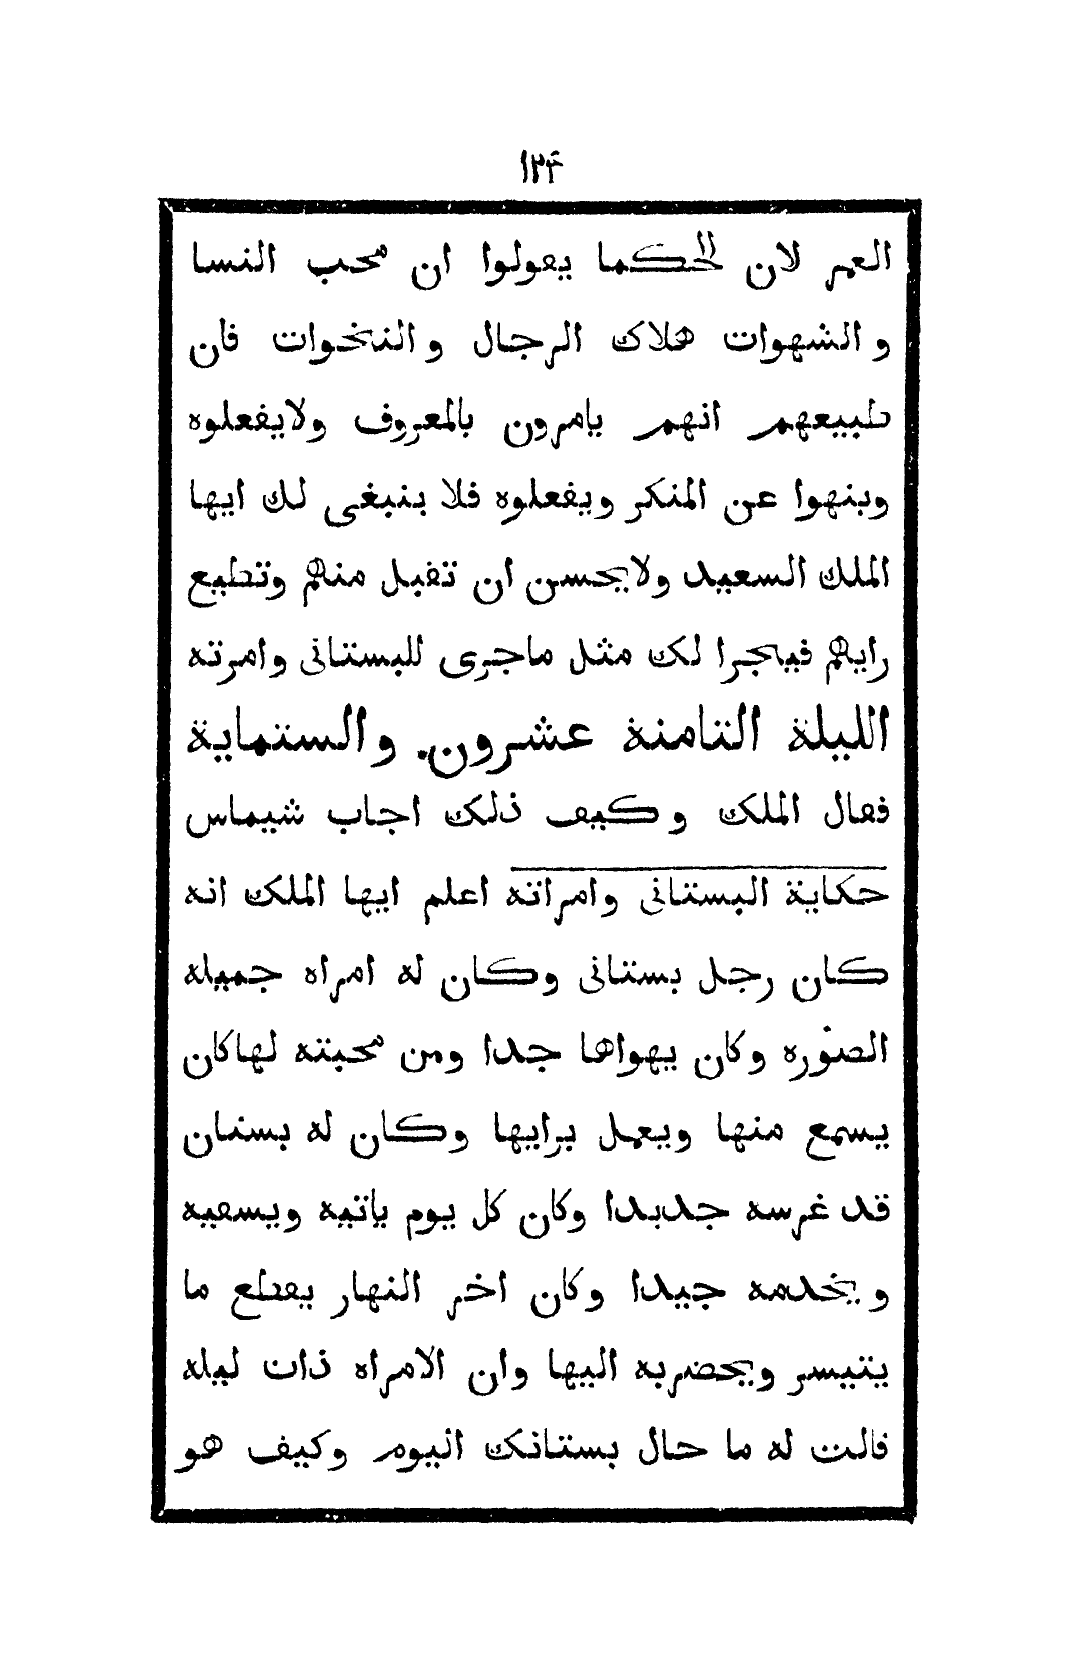 ١٢۴
العمر لان الحكما يقولوا ان محب النسا
والشهوات هلاك الرجال والنخوات فان
طبيعهم انهم يامرون بالمعروف ولايفعلوه
وينهوا عن المنكر ويفعلوه فلا ينبغى لك ايها
الملك السعيد ولايحسن ان تقبل منهم وتطيع
رايهم فيجرا لك مثل ماجرى للبستانى وامرته
الليلة الثامنة عشرون. والستماية
فقال الملك وكيف ذلك اجاب شيماس
حكاية البستانى وامراته اعلم ايها الملك انه
كان رجل بستانى وكان له امراه جميله
الصوره وكان يهواها جدا ومن محبته لهاكان
يسمع منها ويعمل برايها وكان له بستان
قد غرسه جديدا وكان كل يوم ياتيه ويسقيه
ويخدمه جيدا وكان اخر النهار يقطع ما
يتيسر ويحضربه اليها وان الامراه ذات ليله
قالت له ما حال بستانك اليوم وكيف هو